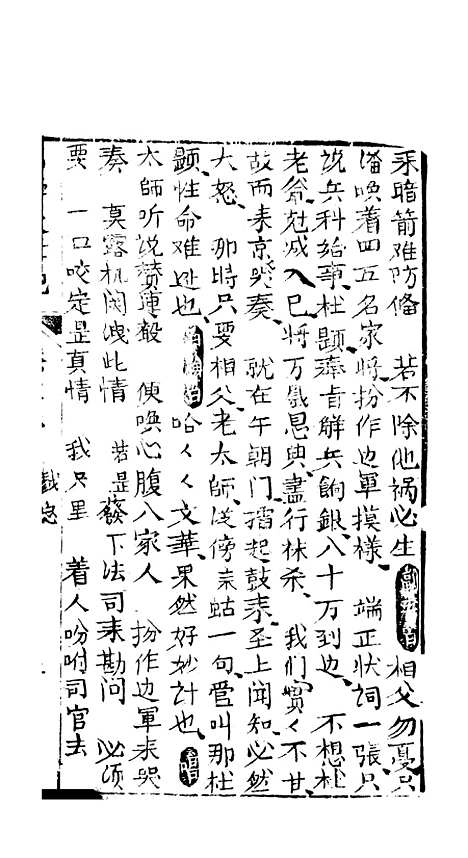 來暗箭难防備　若不除他祸必生　副五白　相父勿憂只
俻唤着四五名家将扮作边軍摸様　端正状词一張只
说兵科给事杜顕奉旨解兵餉銀八十万到边　不想杜
老爺尅减入已将万歲恩典盡行抹杀　我们實く不甘
故而来京哭奏　就在午朝门擂起鼓来圣上闻知必然
大怒　那时只要相父老太师従傍一句管叫那杜
顕性命难逃也　哈くく文華果然好妙計也　唱
太師听说賛連殺　便唤心腹八家人　扮作边軍来哭
奏　莫露机関洩此情　若是發下法司来勘问　必须
要　一口咬定是真情　我只里　着人吩咐司官去